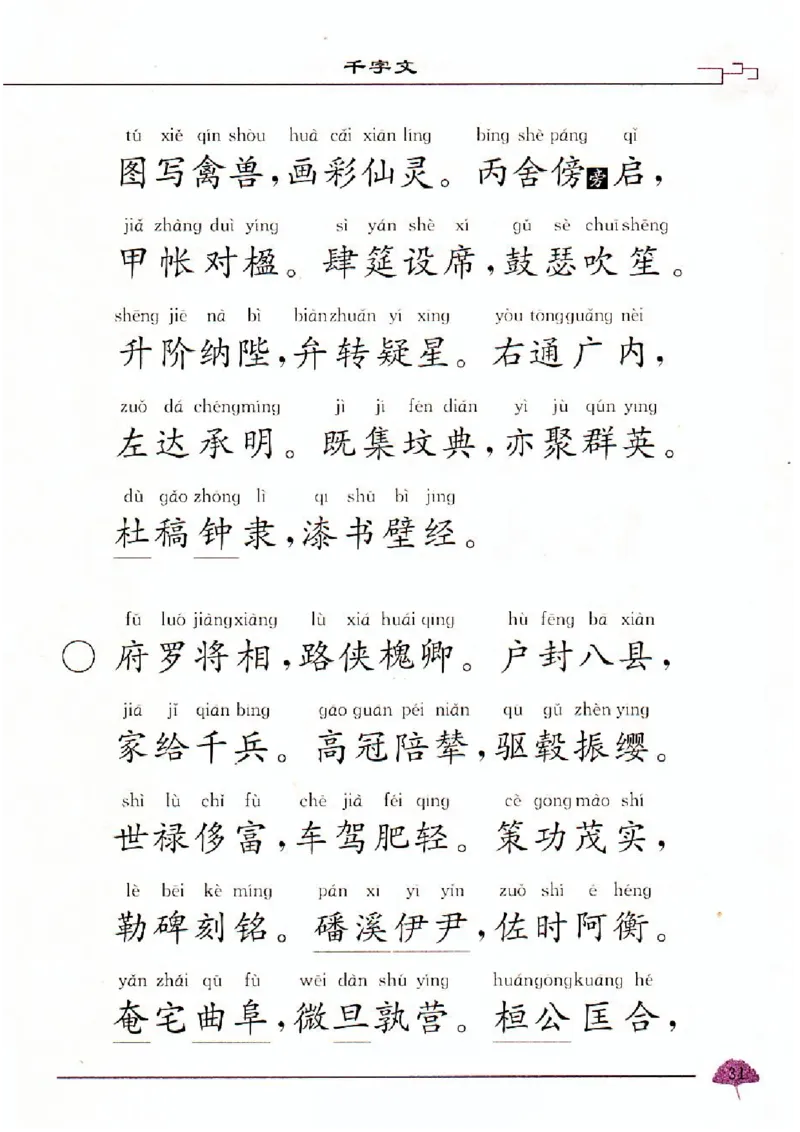 千字文
tú xiě qín shòu huà cǎi xiān líng bǐng shè páng qǐ
图写禽兽，画彩仙灵。丙舍傍旁启，
jiǎ zhàng duì yíng sì yán shè xí gǔ sè chuī shēng
甲帐对楹。肆筵设席，鼓瑟吹笙。
shēng jiē nà bì biàn zhuǎn yí xīng yòu tōng guǎng nèi
升阶纳陛，弁转疑星。右通广内，
zuǒ dá chéng míng jì jí fén diǎn yì jù qún yīng
左达承明。既集坟典，亦聚群英。
dù gǎo zhōng lì qī shū bì jīng
杜稿钟隶，漆书壁经。
fǔ luó jiàng xiàng lù xiá huái qīng hù fēng bā xiàn
府罗将相，路侠槐卿。户封八县，
jiā jǐ qiān bīng gāo guān péi niǎn qū gǔ zhèn yīng
家给千兵。高冠陪辇，驱毂振缨。
shì lù chǐ fù chē jià féi qīng cè gōng mào shí
世禄侈富，车驾肥轻。策功茂实，
lè bēi kè míng pán xī yī yǐn zuǒ shí ē héng
勒碑刻铭。磻溪伊尹，佐时阿衡。
yǎn zhái qū fù wēi dàn shú yíng huán gōng kuāng hé
奄宅曲阜，微旦孰营。桓公匡合，
31